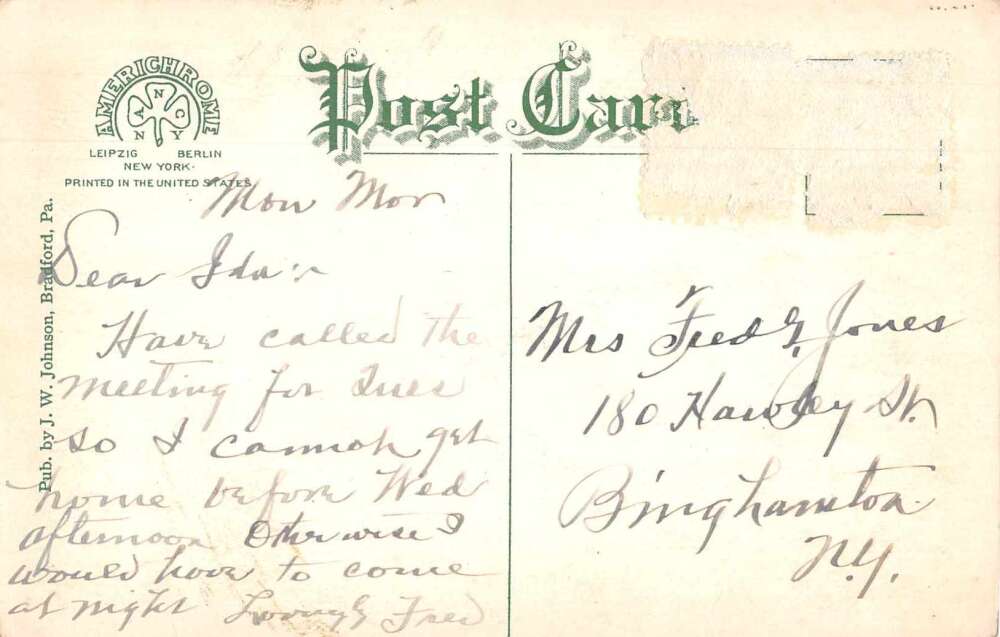 AMERICHROME
NANCY
LEIPZIG BERLIN
NEW YORK
PRINTED IN THE UNITED STATES
Post Card
Pub. by J. W. Johnson, Bradford, Pa.
Mon Mor
Dear Ida:
Have called the
meeting for Tues
so I cannot get
home before Wed
afternoon Otherwise I
would have to come
at night Lovingly Fred
Mrs Fred G. Jones
180 Hawley St.
Binghamton
N.Y.